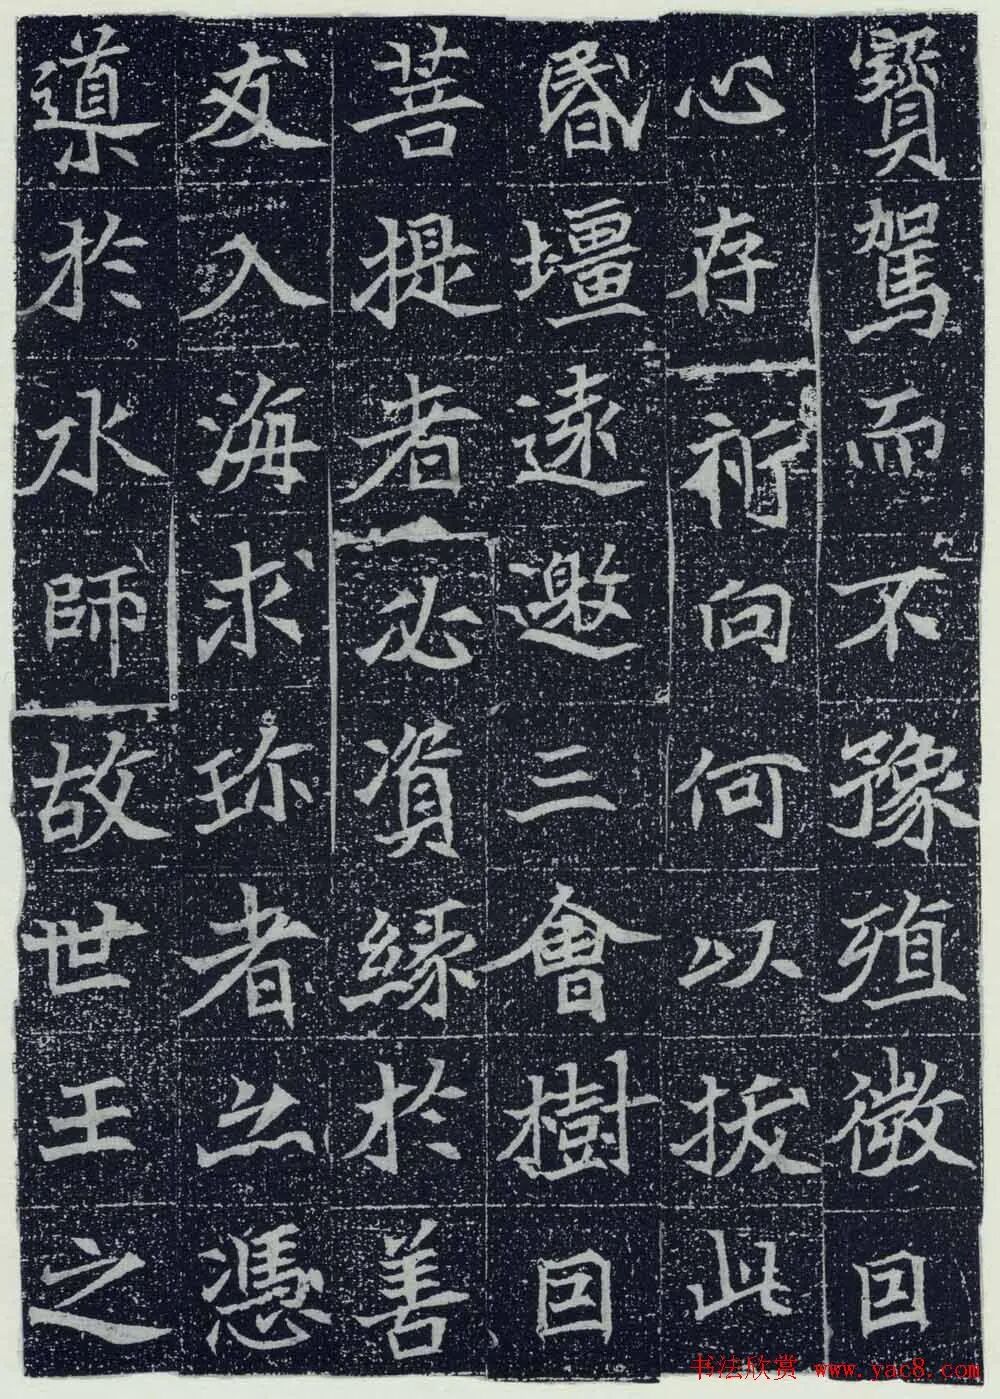 寶駕而不豫殖微囙
心存祈向何以拔此
昬壃遠邀三會樹囙
菩提者必資緣於善
友入海求珎者亦憑
導於水師故世王之
书法欣赏 www.yac8.com